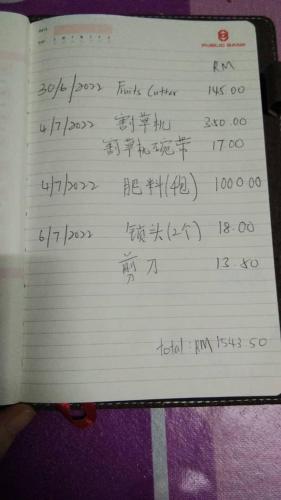 PUBLIC BANK
RM
30/6/2022 Fruits Cutter 145.00
4/7/2022 割草机 350.00
割草机碗带 17.00
4/7/2022 肥料(4包) 1000.00
6/7/2022 锁头(2个) 18.00
剪刀 13.50
total: RM 1543.50